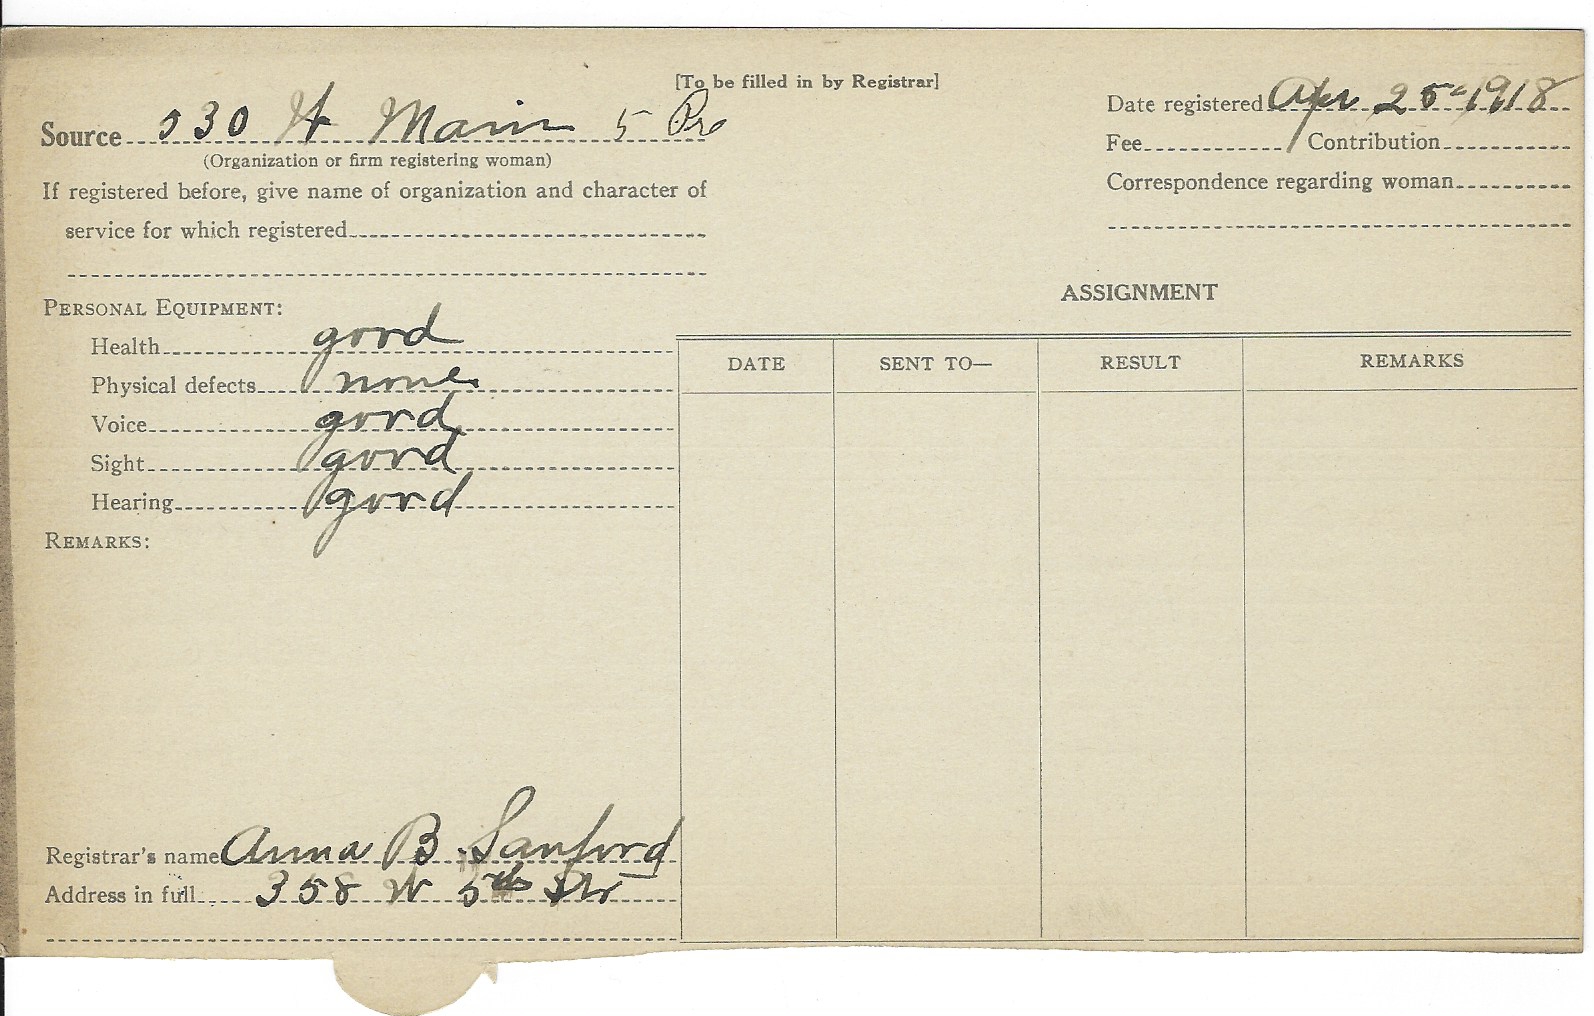 [To be filled in by Registrar]
Source 530 W Main 5 Pre
(Organization or firm registering woman)
If registered before, give name of organization and character of
service for which registered
Date registered Apr 25 - 1918
Fee Contribution
Correspondence regarding woman
PERSONAL EQUIPMENT:
Health good
Physical defects none
Voice good
Sight good
Hearing good
REMARKS:
Registrar's name Anna B. Sanford
Address in full 358 W 5th Str
ASSIGNMENT
DATE SENT TO— RESULT REMARKS